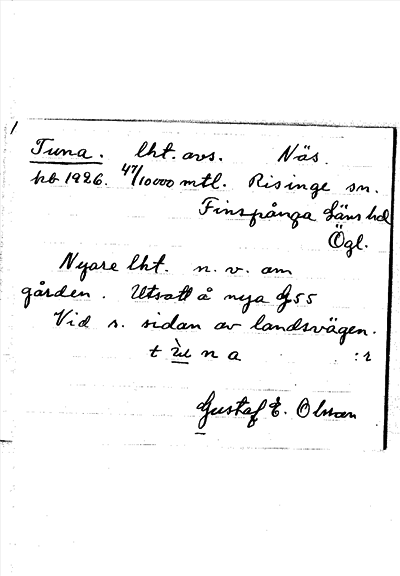 Tuna. lht. avs. Näs.
hb 1926. 47/10000 mtl. Risinge sn.
Finspånga Läns hd
Ögl.
Nyare lht. n. v. om
gården. Utsatt å nya G55
Vid s. sidan av landsvägen.
t ù n a :r
Gustaf E. Olsson